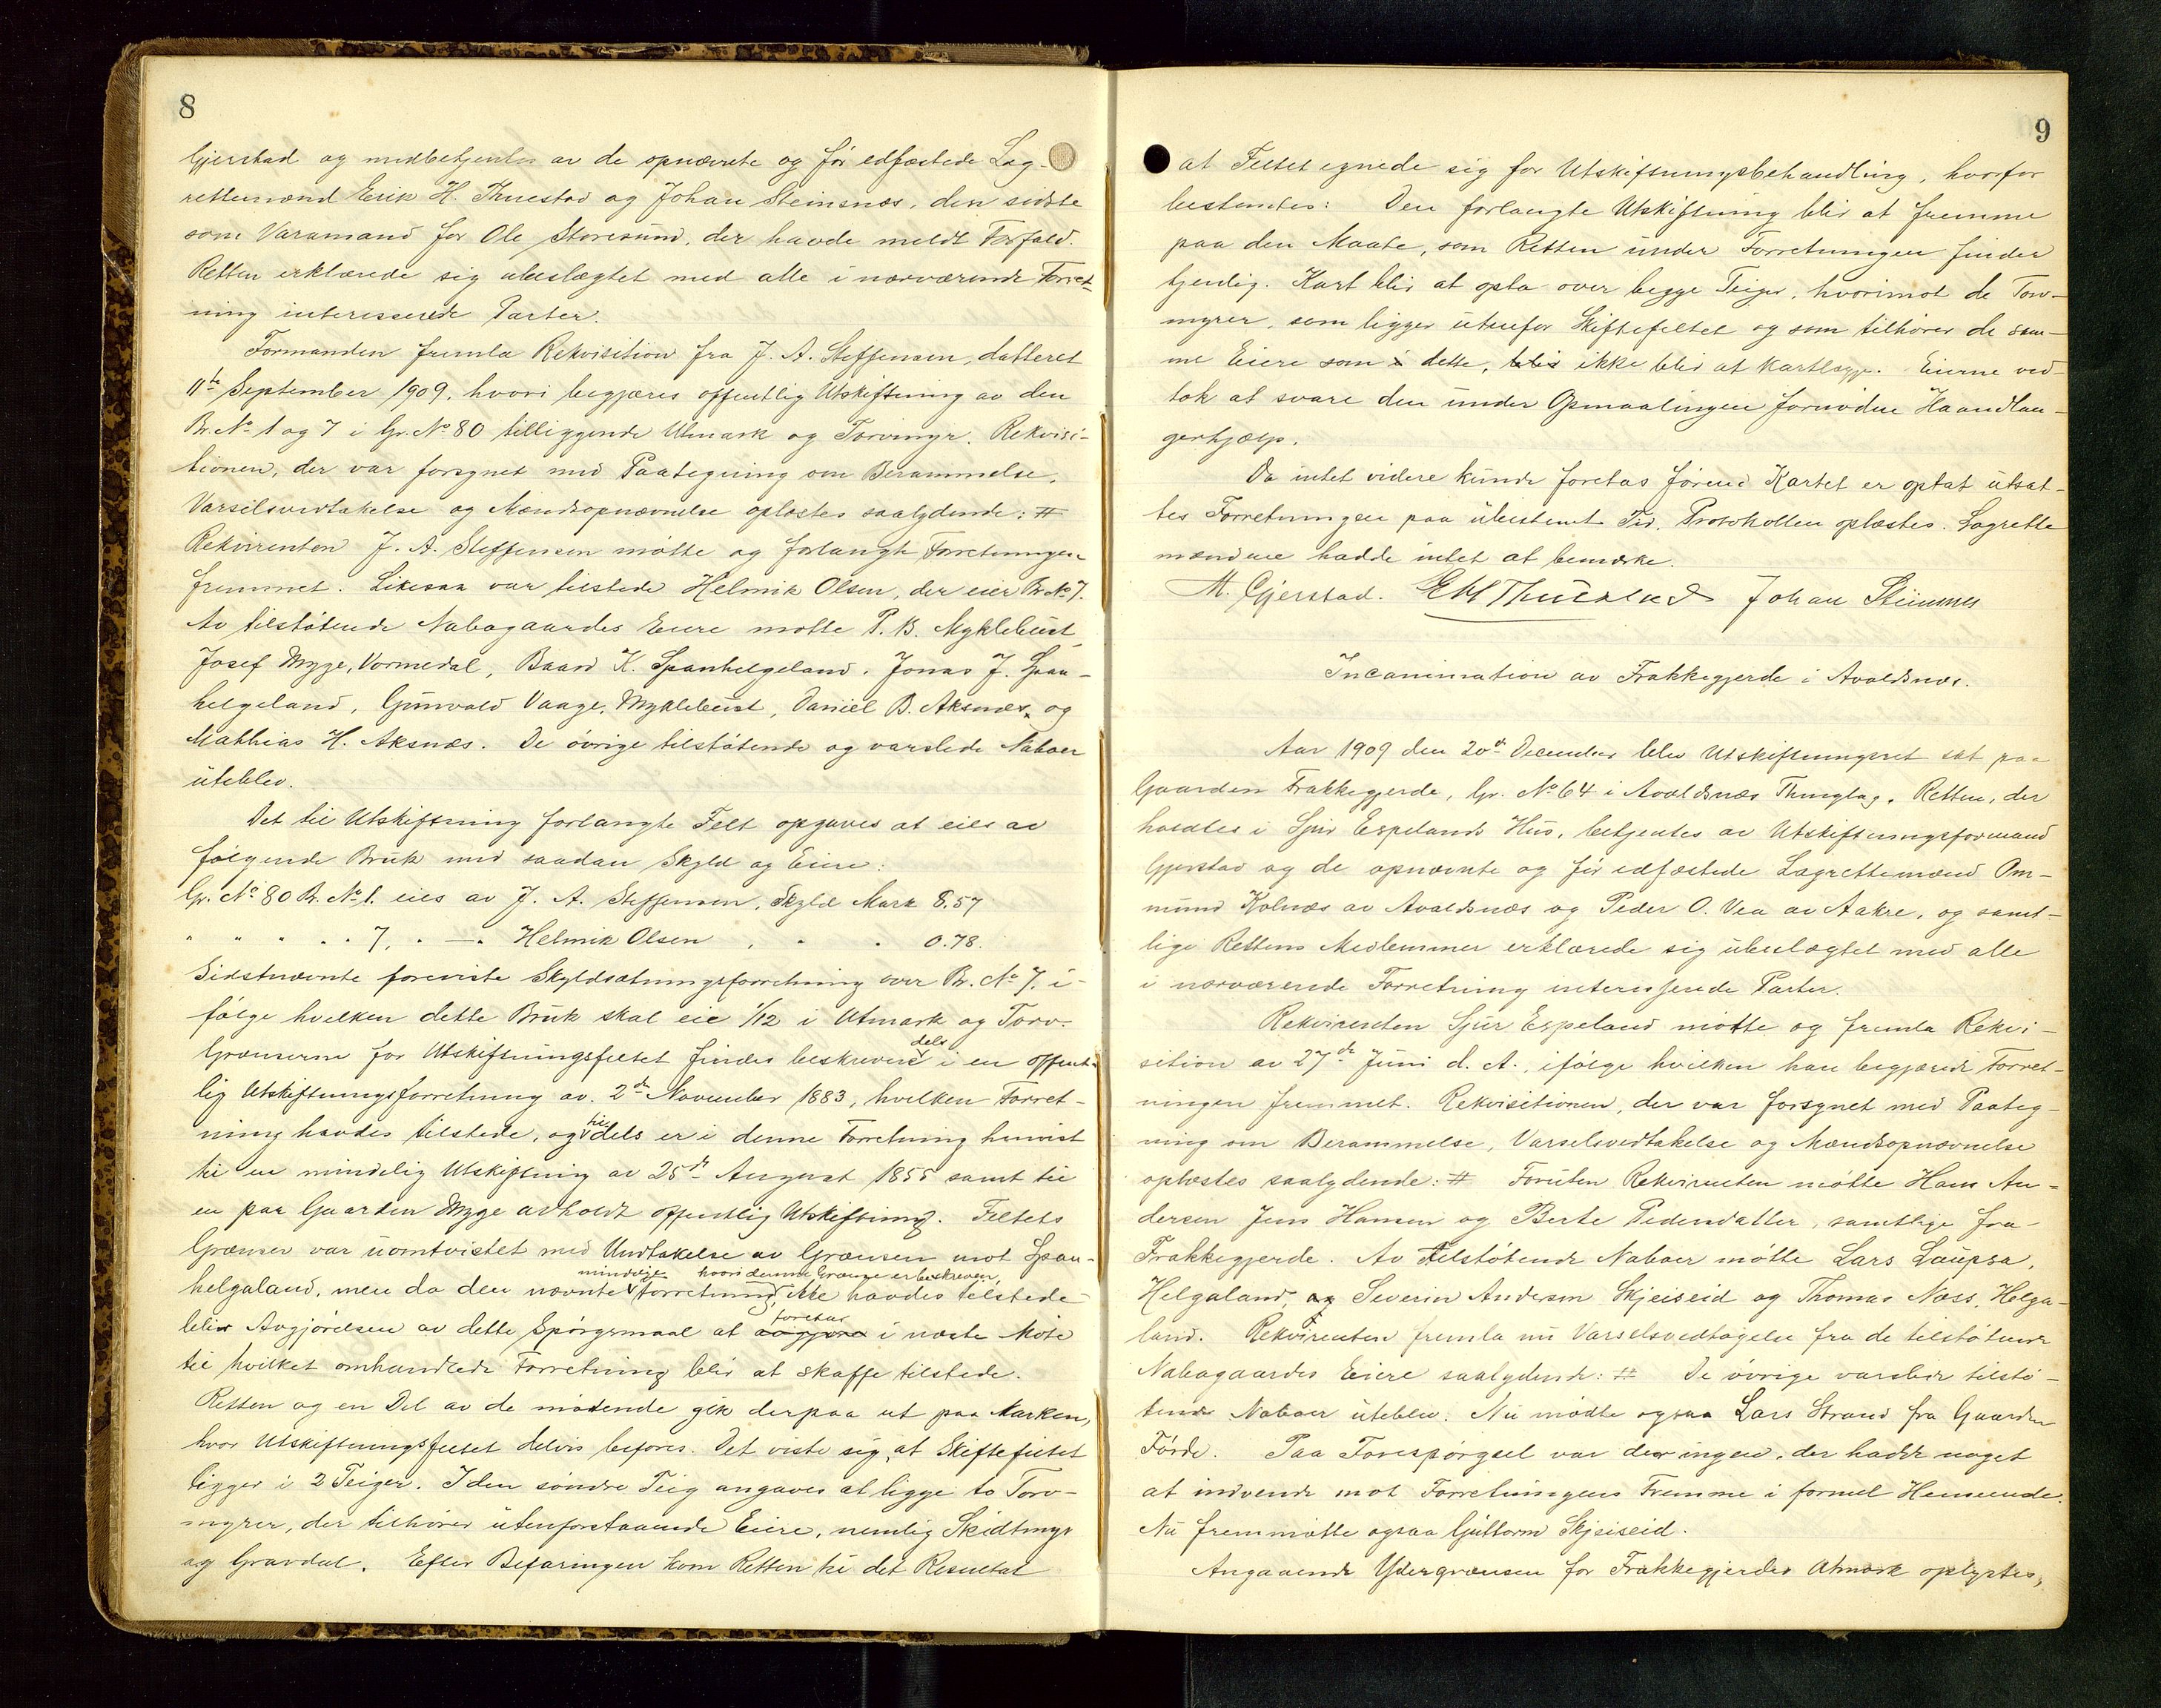 8
Gjerstad og medbetjentes av de opnævnte og før edfæstede Lag-
rettemænd Erik H. Thuestad og Johan Steinsnæs, den sidste
som Varamand for Ole Storesund, der havde meldt Forfald.
Retten erklærede sig ubeslægtet med alle i nærværende Forret-
ning interesserede Parter.
Formanden fremla Rekvisition fra J. A. Steffensen, datteret
11te September 1909, hvori begjæres offentlig Utskiftning av den
Br. No 1 og 7 i Gr. No 80 tilliggende Utmark og Torvmyr. Rekvisi-
tionen, der var forsynet med Paategning om Berammelse,
Varselsvedtakelse og Mændsopnævnelse oplæstes saalydende: #
Rekvirenten J. A. Steffensen møtte og forlangte Forretningen
fremmet. Likesaa var tilstede Helmik Olsen, der eier Br. No 7.
Av tilstøtende Nabogaardes Eiere møtte P. B. Myklebust,
Josef Myge, Vormedal, Baard K. Spanhelgeland, Jonas J. Span-
helgeland, Gunvald Vaage, Myklebust, Daniel B. Aksnæs og
Mathias H. Aksnæs. De øvrige tilstøtende og varslede Naboer
uteblev.
Det til Utskiftning forlangte Felt opgaves at eies av
følgende Bruk med saadan Skyld og Eiere:
Gr. No 80 Br. No 1. eies av J. A. Steffensen, Skyld Mark 8.57
" " " " " 7, " — " Helmik Olsen , " " 0.78.
Sidstnævnte foreviste Skyldsætningsforretning over Br. No 7, i-
følge hvilken dette Bruk skal eie 1/12 i Utmark og Torv.
Grænserne for Utskiftningsfeltet findes beskrevet dels i en offent-
lig Utskiftningsforretning av 2den November 1883, hvilken Forret-
ning havdes tilstede, og dels er i denne Forretning henvist
til en mindelig Utskiftning av 25de August 1855 samt til
en paa Gaarden Myge avholdt offentlig Utskiftning. Feltets
Grænser var uomtvistet med Undtakelse av Grænsen mot Span-
helgaland, men da den nævnte mindelige Forretning, hvori denne Grænse er beskreven, ikke havdes tilstede
blir Avgjørelsen av dette Spørgsmaal at avgjøre foretas i næste Møte
til hvilket omhandlede Forretning blir at skaffe tilstede.
Retten og en Del av de møtende gik derpaa ut paa Marken,
hvor Utskiftningsfeltet delvis befores. Det viste sig, at Skiftefeltet
ligger i 2 Teiger. I den søndre Teig angaves at ligge to Torv-
myrer, der tilhører utenforstaaende Eiere, nemlig Skidtmyr
og Gravdal. Efter Befaringen kom Retten til det Resultat
9
at Feltet egnede sig for Utskiftningsbehandling, hvorfor
bestemtes: Den forlangte Utskiftning blir at fremme
paa den Maate, som Retten under Forretningen finder
tjenlig. Kart blir at opta over begge Teiger, hvorimot de Torv-
myrer, som ligger utenfor Skiftefeltet og som tilhører de sam-
me Eiere som i dette, blir ikke blir at kartlægge. Eierne ved-
tok at svare den under Opmaalingen fornødne Haandlan-
gerhjælp.
Da intet videre kunde foretas førend Kartet er optat utsat-
tes Forretningen paa ubestemt Tid. Protokollen oplæstes. Lagrette
mændene hadde intet at bemærke.
M. Gjerstad. E H Thuestad Johan Steinsnes
Incamination av Frakkegjerde i Avaldsnæs.
Aar 1909 den 20de December blev Utskiftningsret sat paa
Gaarden Frakkegjerde, Gr. No 64 i Avaldsnæs Thinglag. Retten, der
holdtes i Sjur Espelands Hus, betjentes av Utskiftningsformand
Gjerstad og de opnævnte og før edfæstede Lagrettemænd Om-
mund Kolnæs av Avaldsnæs og Peder O. Vea av Aakre, og samt-
lige Rettens Medlemmer erklærede sig ubeslægtet med alle
i nærværende Forretning interesserede Parter.
Rekvirenten Sjur Espeland møtte og fremla Rekvi-
sition av 27de Juni d. A., ifølge hvilken han begjærede Forret-
ningen fremmet. Rekvisitionen, der var forsynet med Paateg-
ning om Berammelse, Varselsvedtakelse og Mændsopnævnelse
oplæstes saalydende: # Foruten Rekvirenten møtte Hans An-
dersen Jens Hansen og Berte Pedersdatter, samtlige fra
Frakkegjerde. Av tilstøtende Naboer møtte Lars Laupsa,
Helgaland, og Severin Andersen Skjeiseid og Thomas Næss, Helga-
land. Rekvirenten fremla nu Varselsvedtagelse fra de tilstøtende
Nabogaardes Eiere saalydende: # De øvrige varslede tilstø-
tende Naboer uteblev. Nu mødte ogsaa Lars Strand fra Gaarden
Førde. Paa Forespørgsel var der ingen, der hadde noget
at indvende mot Forretningens Fremme i formel Henseende.
Nu fremmøtte ogsaa Guttorm Skjeiseid.
Angaaende Ydergrænsen for Frakkegjerdes Utmark oplystes,